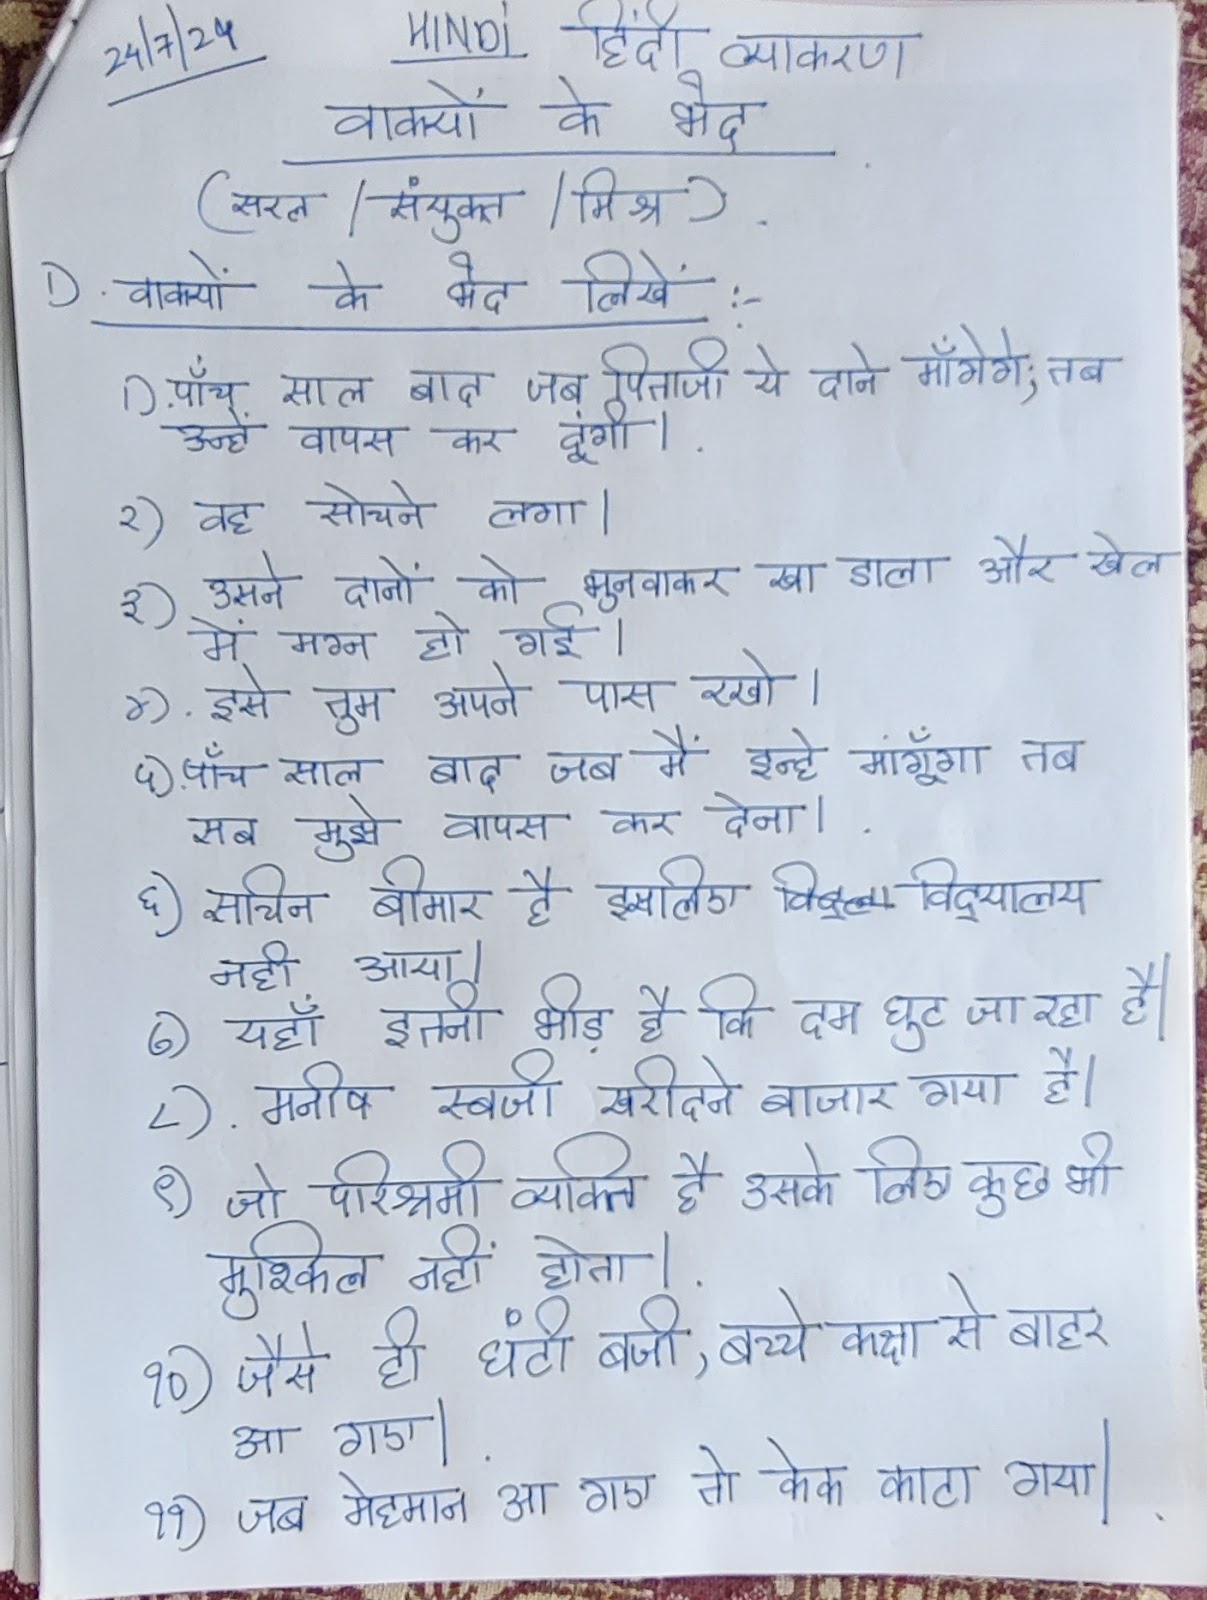 24/7/24 HINDI हिंदी व्याकरण
वाक्यों के भेद
(सरल / संयुक्त / मिश्र).
1). वाक्यों के भेद लिखें :-
1). पाँच साल बाद जब पिताजी ये दाने माँगेगे, तब
उन्हें वापस कर दूंगी।
२) वह सोचने लगा।
३) उसने दानों को भुनवाकर खा डाला और खेल
में मग्न हो गई।
४). इसे तुम अपने पास रखो।
५). पाँच साल बाद जब मैं इन्हे मांगूँगा तब
सब मुझे वापस कर देना।
६) सचिन बीमार है इसलिए विद्यालय
नही आया।
७) यहाँ इतनी भीड़ है कि दम घुट जा रहा है।
८). मनीष स्बजी खरीदने बाजार गया है।
९) जो परिश्रमी व्यक्ति है उसके लिए कुछ भी
मुश्किल नहीं होता।
१०) जैसे ही घंटी बजी, बच्चे कक्षा से बाहर
आ गए।
११) जब मेहमान आ गए तो केक काटा गया।